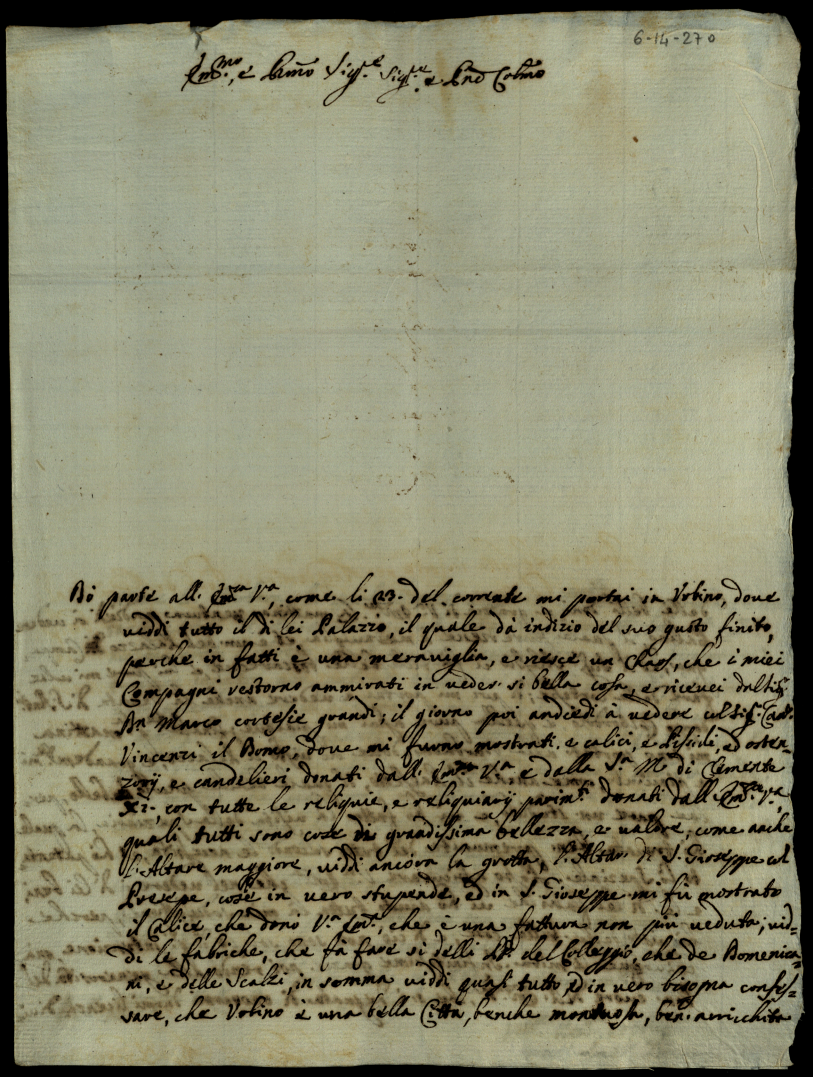 6-14-270
Em.mo, e Rmo Sig.re Sig.re e Pnd Colmo
Dò parte all. Em.za V.a, come li 23. del corrente mi portai in Vrbino, dove
viddi tutto il di lei Palazzo, il quale dà indizio del suo gusto finito,
perche in fatti è una meraviglia, e riesce un Chaos, che i miei
Compagni restorno ammirati in veder si bella cosa, e ricevei dal Sig.
Dn Marco cortesie grandi; il giorno poi andiedi à vedere col Sig. Can.
Vincenzi il Domo, dove mi furno mostrati, e calici, e Pissidi, ed osten-
zorij, e candelieri donati dall. Em.za V.a, e dalla S.a M. di Clemente
XI., con tutte le reliquie, e reliquiarij parim.ti donati dall. Em.za V.a,
quali tutti sono cose di grandissima bellezza, e valore, come anche
l. Altare maggiore, viddi ancora la grotta, l. Altar di S. Gioseppe col
Presepe, cose in vero stupende, ed in S. Gioseppe mi fù mostrato
il Calice, che donò V.a Em., che è una fattura non più veduta; vid-
di le fabriche, che fà fare si delli PP. del Colleggio, che de Domenica-
ni, e delle Scalzi, in somma viddi quasi tutto, ed in vero bisogna confes-
sare, che Vrbino è una bella Città, benche montuosa, ben arricchita